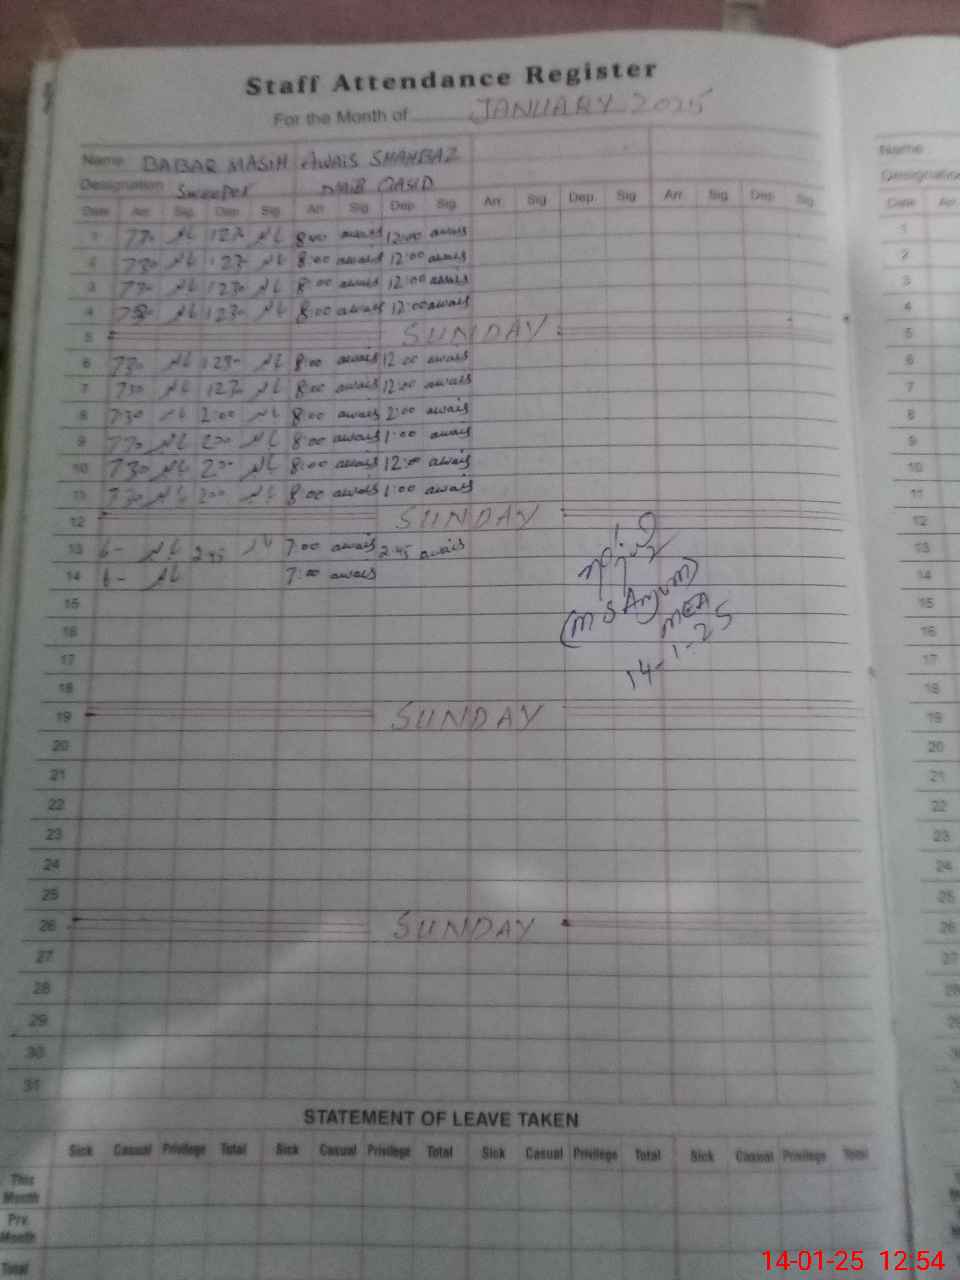 Staff Attendance Register
For the Month of JANUARY 2025
Name BABAR MASIH AWAIS SHAHBAZ
Designation Sweeper NAIB QASID
Date Arr. Sig. Dep. Sig. Arr. Sig. Dep. Sig. Arr. Sig. Dep. Sig. Arr. Sig. Dep. Sig.
1 730 بابر 1230 بابر 8:00 awais 12:00 awais
2 730 بابر 1230 بابر 8:00 awais 12:00 awais
3 730 بابر 1230 بابر 8:00 awais 12:00 awais
4 730 بابر 1230 بابر 8:00 awais 12:00 awais
5 SUNDAY
6 730 بابر 1230 بابر 8:00 awais 12:00 awais
7 730 بابر 1230 بابر 8:00 awais 12:00 awais
8 730 بابر 2:00 بابر 8:00 awais 2:00 awais
9 730 بابر 200 بابر 8:00 awais 1:00 awais
10 730 بابر 200 بابر 8:00 awais 12:00 awais
11 730 بابر 200 بابر 8:00 awais 1:00 awais
12 SUNDAY
13 6- بابر 2:45 بابر 7:00 awais 2:45 awais
14 6- بابر 7:00 awais
(M S Anjum)
MEA
14-1-25
15
16
17
18
19 SUNDAY
20
21
22
23
24
25
26 SUNDAY
27
28
29
30
31
STATEMENT OF LEAVE TAKEN
Sick Casual Privilege Total Sick Casual Privilege Total Sick Casual Privilege Total Sick Casual Privilege Total
This Month
Prv. Month
Total
Name
Designation
Date Arr.
1
2
3
4
5
6
7
8
9
10
11
12
13
14
15
16
17
18
19
20
21
22
23
24
25
26
27
28
29
30
14-01-25 12:54